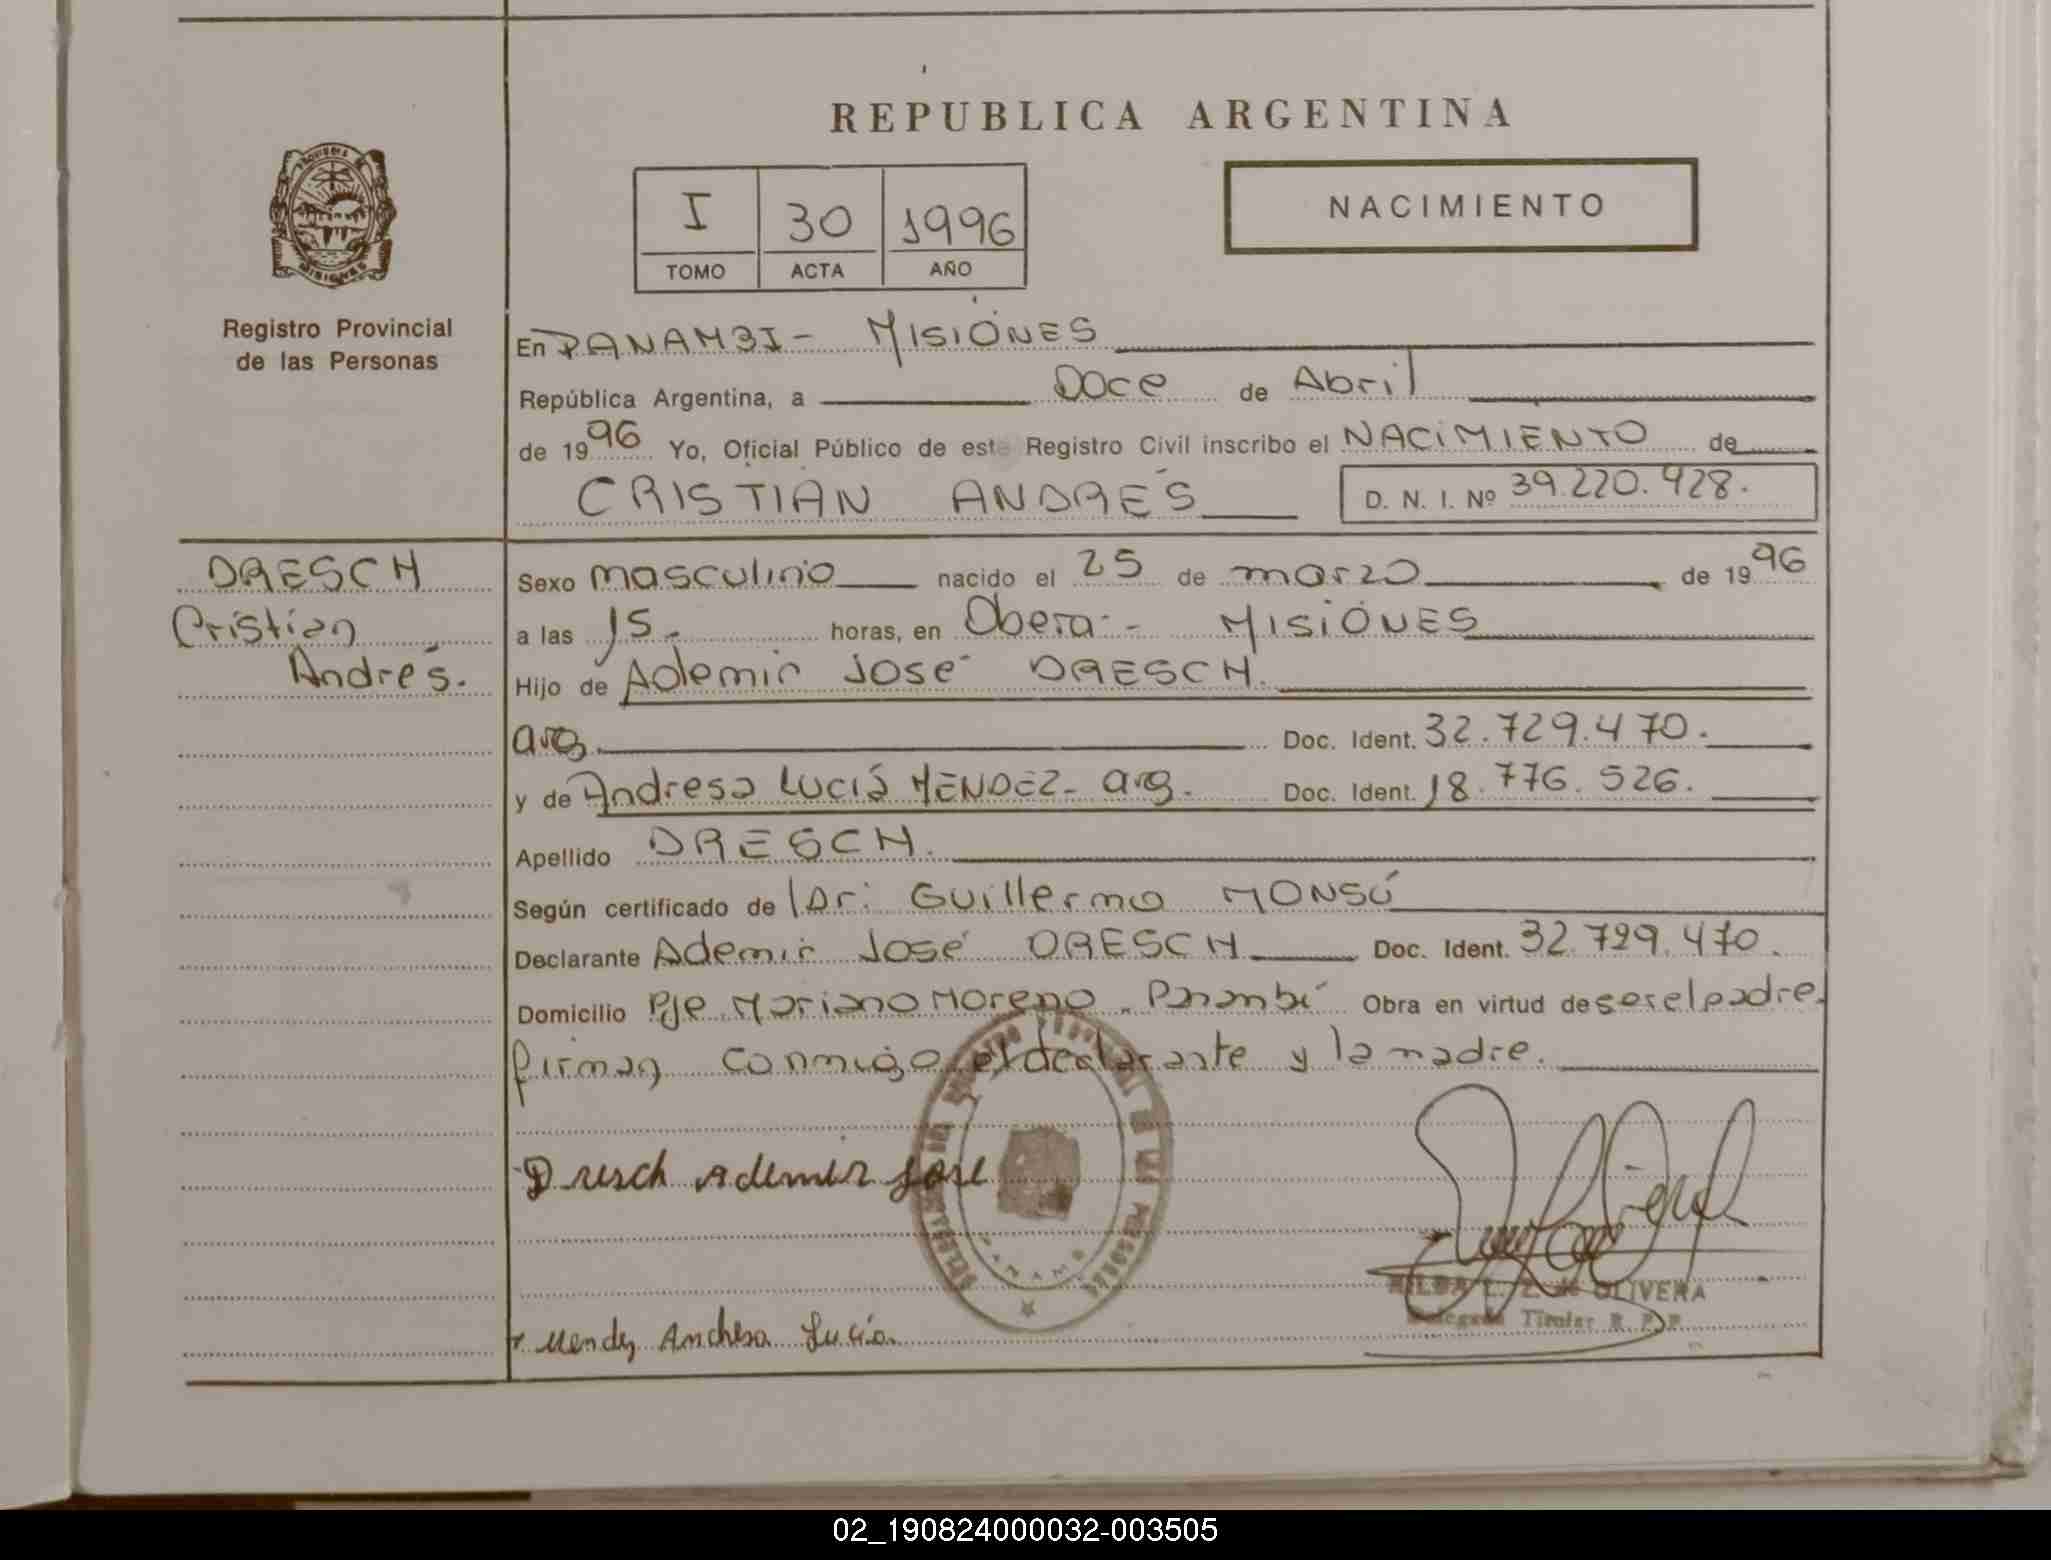 REPUBLICA ARGENTINA
NACIMIENTO
I 30 1996
TOMO ACTA AÑO
MISIONES
Registro Provincial
de las Personas
En PANAMBI - MISIONES
República Argentina, a Doce de Abril
de 1996 Yo, Oficial Público de este Registro Civil inscribo el NACIMIENTO de
CRISTIAN ANDRÉS D. N. I. Nº 39.220.928.
DRESCH
Cristian
Andrés.
Sexo masculino nacido el 25 de marzo de 1996
a las 15.- horas, en Obera - MISIONES
Hijo de Ademir José DRESCH.
arg. Doc. Ident. 32.729.470.
y de Andresa Luciá MENDEZ - arg. Doc. Ident. 18.776.526.
Apellido DRESCH.
Según certificado de Guillermo MONSÚ
Declarante Ademir José DRESCH Doc. Ident. 32.729.470.
Domicilio Pje Mariano Moreno - Panambí Obra en virtud de ser el padre.
firman conmigo el declarante y la madre.
Dresch Ademir Jose
Mendez Andresa Lucia
HILDA L. Z. de OLIVERA
Delegada Titular R. P. P.
02_190824000032-003505